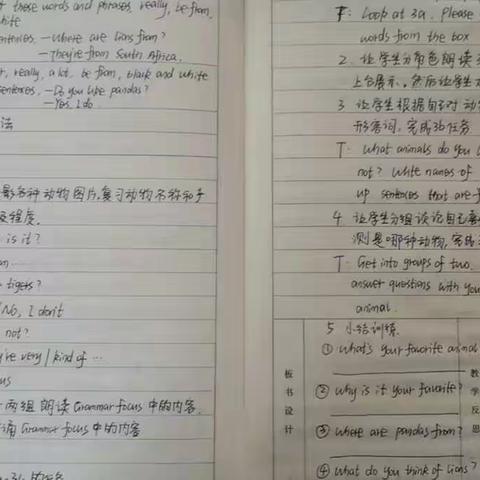 these words and phrases, really, be from,
white
sentences, -Where are lions from?
-They're from South Africa.
really, a lot. be from, black and white
sentences, -Do you like pandas?
-Yes, I do.
法
各种动物图片,复习动物名称和
程度.
is it?
tigers?
No, I don't
not?
're very / kind of …
us
两组朗读 Grammar focus 中的内容.
Grammar focus 中的内容
T: Look at 3a. Please
words from the box
2. 让学生分角色朗读
上台展示, 然后让学生
3 让学生根据自己对动
形容词, 完成3b任务
T: What animals do you
not? Write names of
up sentences that are
4. 让学生分组谈论自己喜
测是哪种动物, 完成
T- Get into groups of two.
answer questions with you
animal.
5 小结训练.
① What's your favorite animal
② Why is it your favorite?
③ Where are pandas from?
④ What do you think of lions?
板书设计
教学反思